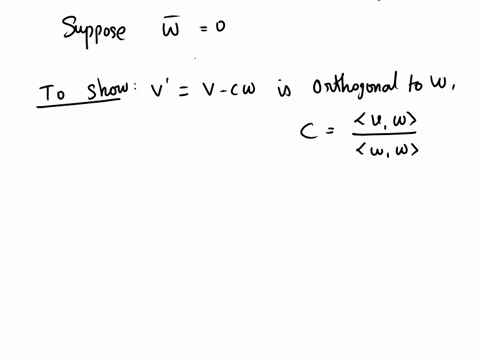 Suppose w̅ = 0
To show: v' = v - cw is orthogonal to w,
c = <v, w> / <w, w>